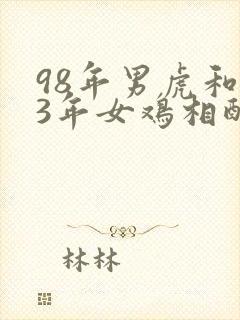 98年男虎和
3年女鸡相
林林